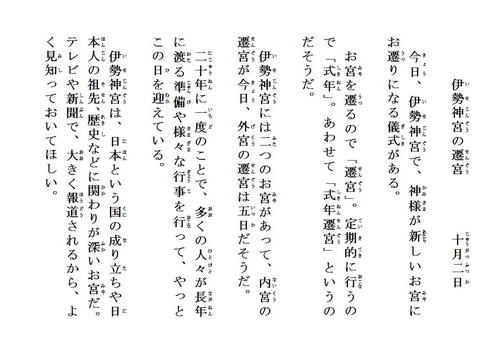 伊勢神宮の遷宮　十月二日
今日、伊勢神宮で、神様が新しいお宮に
お遷りになる儀式がある。
お宮を遷るので「遷宮」。定期的に行うの
で「式年」。あわせて「式年遷宮」というの
だそうだ。
伊勢神宮には二つのお宮があって、内宮の
遷宮が今日、外宮の遷宮は五日だそうだ。
二十年に一度のことで、多くの人々が長年
に渡る準備や様々な行事を行って、やっと
この日を迎えている。
伊勢神宮は、日本という国の成り立ちや日
本人の祖先、歴史などに関わりが深いお宮だ。
テレビや新聞で、大きく報道されるから、よ
く見知っておいてほしい。